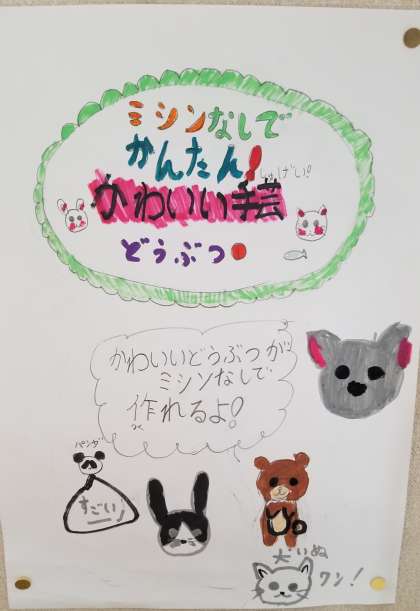 ミシンなしで
かんたん!
しゅげい!
かわいい手芸
どうぶつ
かわいいどうぶつが
ミシンなしで
作れるよ!
パンダ
すごい
犬いぬ
ワン!